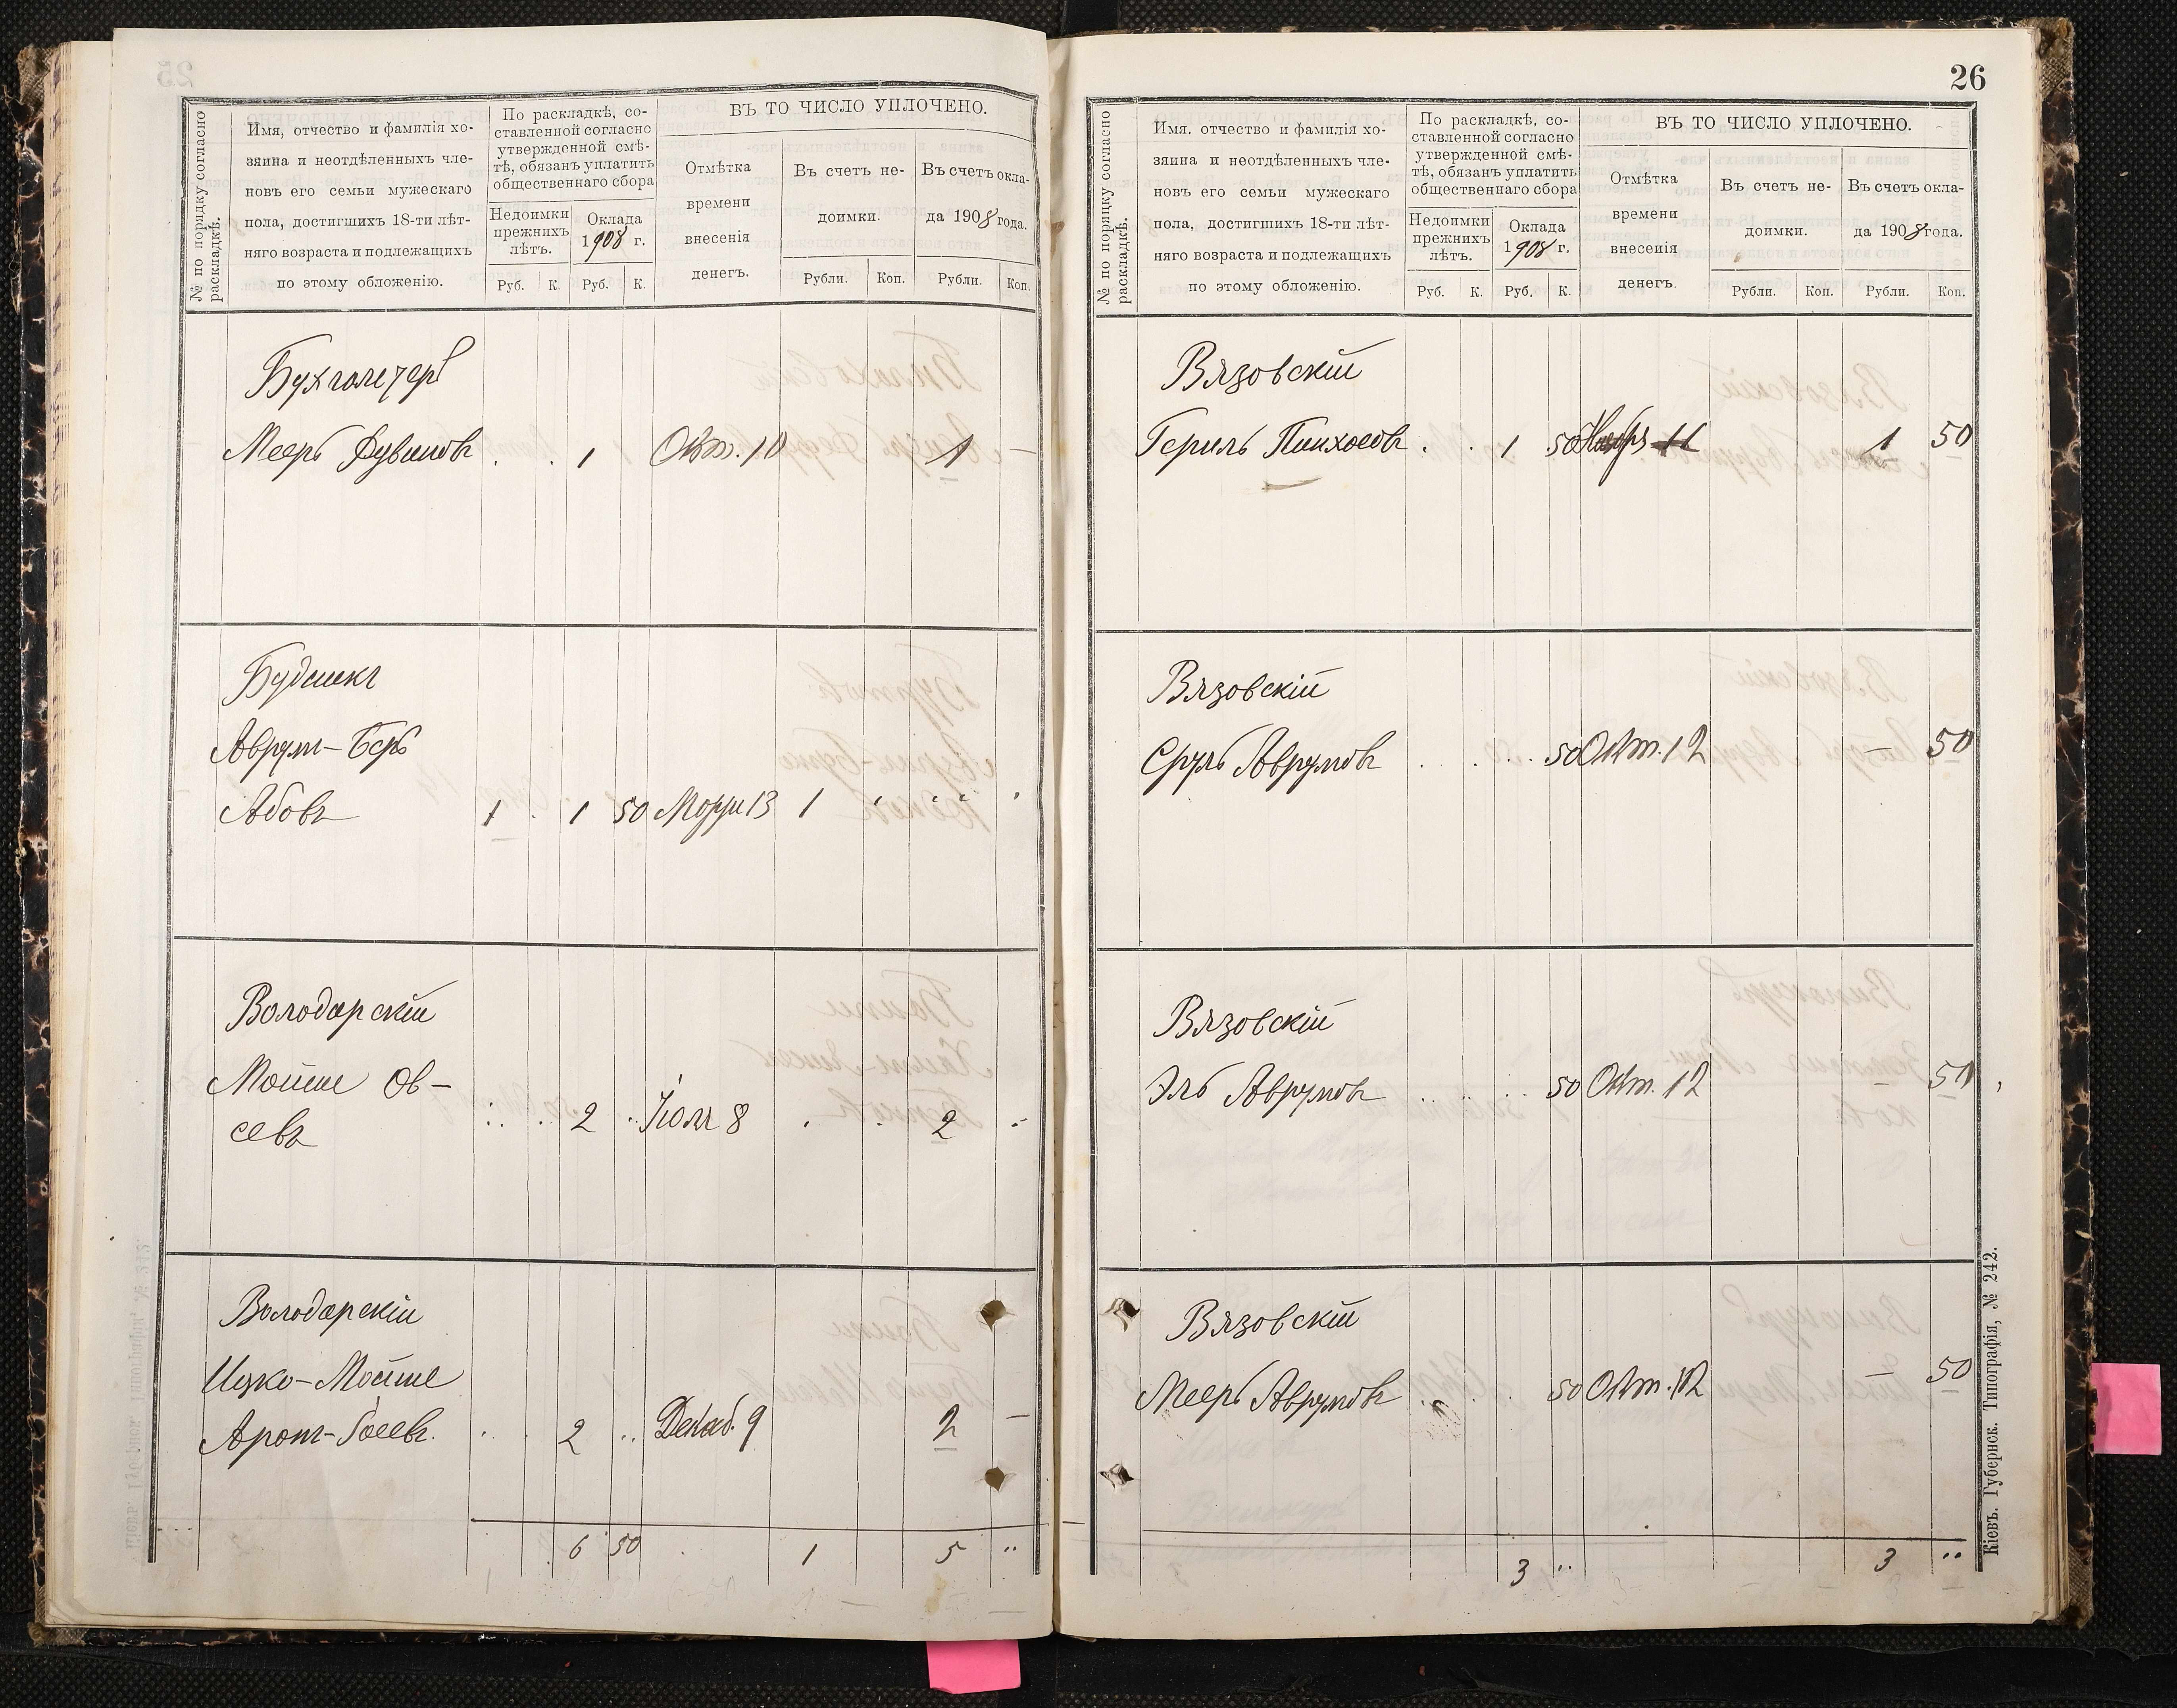 № по порядку согласно
раскладкѣ.
Имя, отчество и фамилія хо-
зяина и неотдѣленныхъ чле-
новъ его семьи мужескаго
пола, достигшихъ 18-ти лѣт-
няго возраста и подлежащихъ
по этому обложенію.
По раскладкѣ, со-
ставленной согласно
утвержденной смѣ-
тѣ, обязанъ уплатить
общественнаго сбора
Недоимки
прежнихъ
лѣтъ.
Оклада
1908 г.
Руб. К. Руб. К.
ВЪ ТО ЧИСЛО УПЛОЧЕНО.
Отмѣтка
времени
внесенія
денегъ.
Въ счетъ не-
доимки.
Въ счетъ окла-
да 1908 года.
Рубли. Коп. Рубли. Коп.
Бухгалтеръ
Мееръ Рувиновъ . . 1 Окт. 10 1 —
Аврум-Беръ
Абовъ 1 . 1 50 13 1
Володарскій
Мойше Ов-
севъ 2 Юля 8 2
Володарскій
Ицко-Мойше
2 Декаб. 9 2 —
6 50 1 5 "
26
№ по порядку согласно
раскладкѣ.
Имя, отчество и фамилія хо-
зяина и неотдѣленныхъ чле-
новъ его семьи мужескаго
пола, достигшихъ 18-ти лѣт-
няго возраста и подлежащихъ
по этому обложенію.
По раскладкѣ, со-
ставленной согласно
утвержденной смѣ-
тѣ, обязанъ уплатить
общественнаго сбора
Недоимки
прежнихъ
лѣтъ.
Оклада
1908 г.
Руб. К. Руб. К.
ВЪ ТО ЧИСЛО УПЛОЧЕНО.
Отмѣтка
времени
внесенія
денегъ.
Въ счетъ не-
доимки.
Въ счетъ окла-
да 1908 года.
Рубли. Коп. Рубли. Коп.
Вязовскій
Пинхосовъ . . 1 50 Ноября 11 1 50
Вязовскій
Сруль Аврумовъ 50 Окт. 12 — 50
Вязовскій
Эль Аврумовъ 50 Окт. 12 — 50
Вязовскій
Мееръ Аврумовъ 50 Окт. 12 — 50
3 " 3 "
Кіевъ. Губернск. Типографія, № 242.